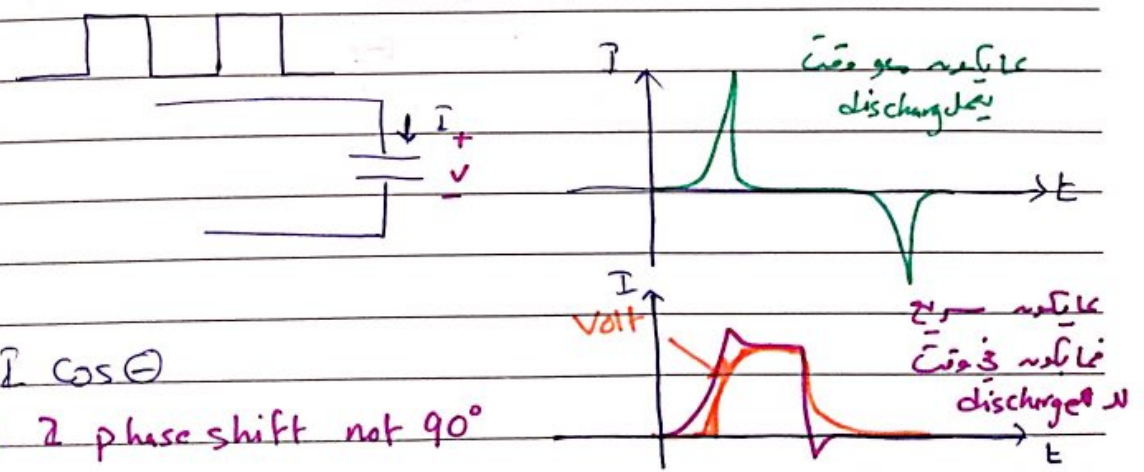 I
+
V
-
I
t
عايكون معو وقت
يعمل discharge
I
Volt
t
عايكون سريع
فما بكون في وقت
لل discharge
I cos Θ
phase shift not 90°